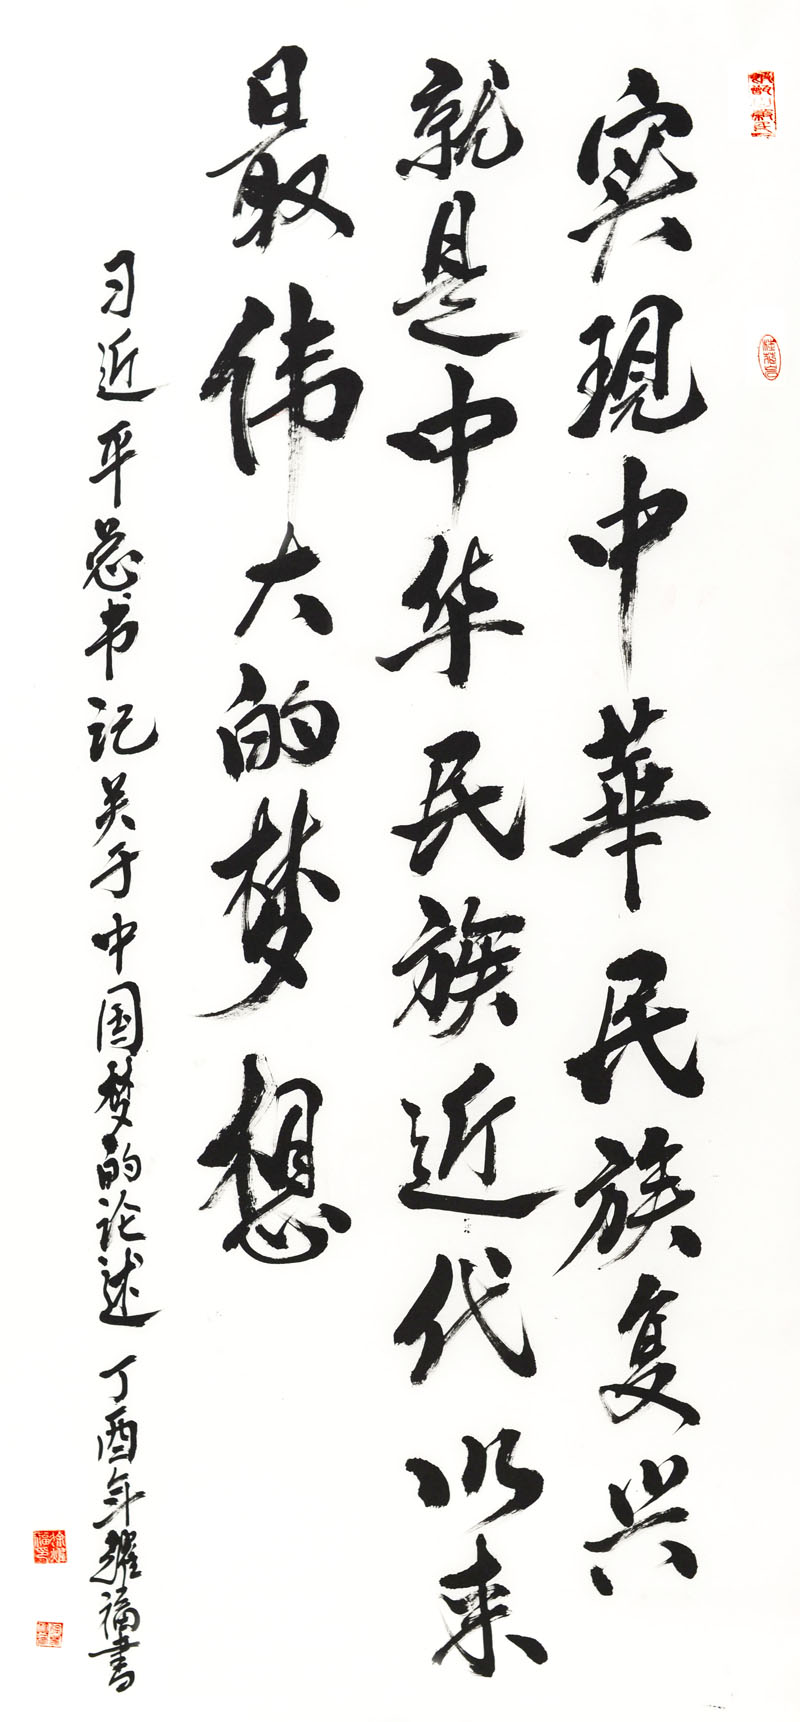 實現中華民族复兴
就是中华民族近代以来
最伟大的梦想
习近平总书记关于中国梦的论述 丁酉年耀福書